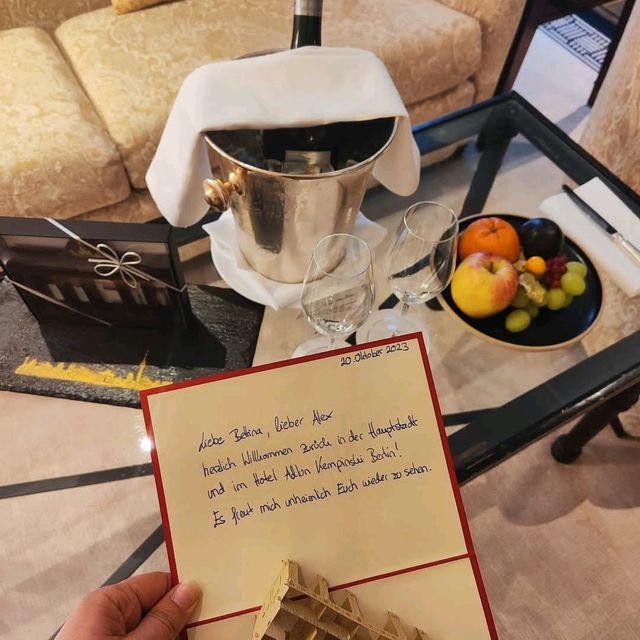 20. Oktober 2023
Liebe Bettina, lieber Alex
herzlich Willkommen zurück in der Hauptstadt
und im Hotel Adlon Kempinski Berlin!
Es freut mich unheimlich Euch wieder zu sehen.